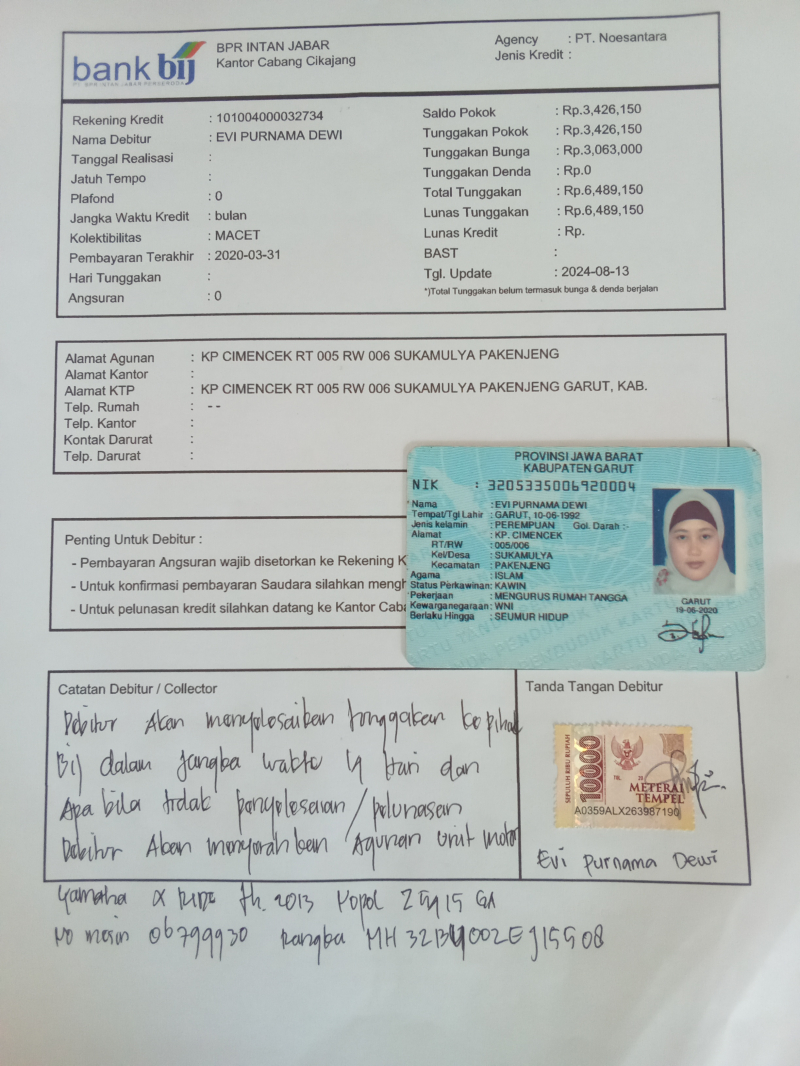 bank bij
BPR INTAN JABAR
Kantor Cabang Cikajang
Agency : PT. Noesantara
Jenis Kredit :
Rekening Kredit : 101004000032734
Nama Debitur : EVI PURNAMA DEWI
Tanggal Realisasi :
Jatuh Tempo :
Plafond : 0
Jangka Waktu Kredit : bulan
Kolektibilitas : MACET
Pembayaran Terakhir : 2020-03-31
Hari Tunggakan :
Angsuran : 0
Saldo Pokok : Rp.3,426,150
Tunggakan Pokok : Rp.3,426,150
Tunggakan Bunga : Rp.3,063,000
Tunggakan Denda : Rp.0
Total Tunggakan : Rp.6,489,150
Lunas Tunggakan : Rp.6,489,150
Lunas Kredit : Rp.
BAST :
Tgl. Update : 2024-08-13
*)Total Tunggakan belum termasuk bunga & denda berjalan
Alamat Agunan : KP CIMENCEK RT 005 RW 006 SUKAMULYA PAKENJENG
Alamat Kantor :
Alamat KTP : KP CIMENCEK RT 005 RW 006 SUKAMULYA PAKENJENG GARUT, KAB.
Telp. Rumah : --
Telp. Kantor :
Kontak Darurat :
Telp. Darurat :
PROVINSI JAWA BARAT
KABUPATEN GARUT
NIK : 3205335006920004
Nama : EVI PURNAMA DEWI
Tempat/Tgl Lahir : GARUT, 10-06-1992
Jenis kelamin : PEREMPUAN Gol. Darah :-
Alamat : KP. CIMENCEK
RT/RW : 005/006
Kel/Desa : SUKAMULYA
Kecamatan : PAKENJENG
Agama : ISLAM
Status Perkawinan: KAWIN
Pekerjaan : MENGURUS RUMAH TANGGA
Kewarganegaraan: WNI
Berlaku Hingga : SEUMUR HIDUP
GARUT
19-06-2020
Penting Untuk Debitur :
- Pembayaran Angsuran wajib disetorkan ke Rekening
- Untuk konfirmasi pembayaran Saudara silahkan
- Untuk pelunasan kredit silahkan datang ke Kantor
Catatan Debitur / Collector
Debitur Akan menyelesaikan tonggakan ke pihak
Bij dalam Jangka waktu 4 Hari dan
Apa bila tidak penyelesaian / pelunasan
Debitur Akan menyerahkan Agunan unit motor
Yamaha X RIDE th. 2013 Nopol
No mesin 06799930 Rangka
Tanda Tangan Debitur
SEPULUH RIBU RUPIAH
10000
METERAI
TEMPEL
A0359ALX263987190
Evi Purnama Dewi